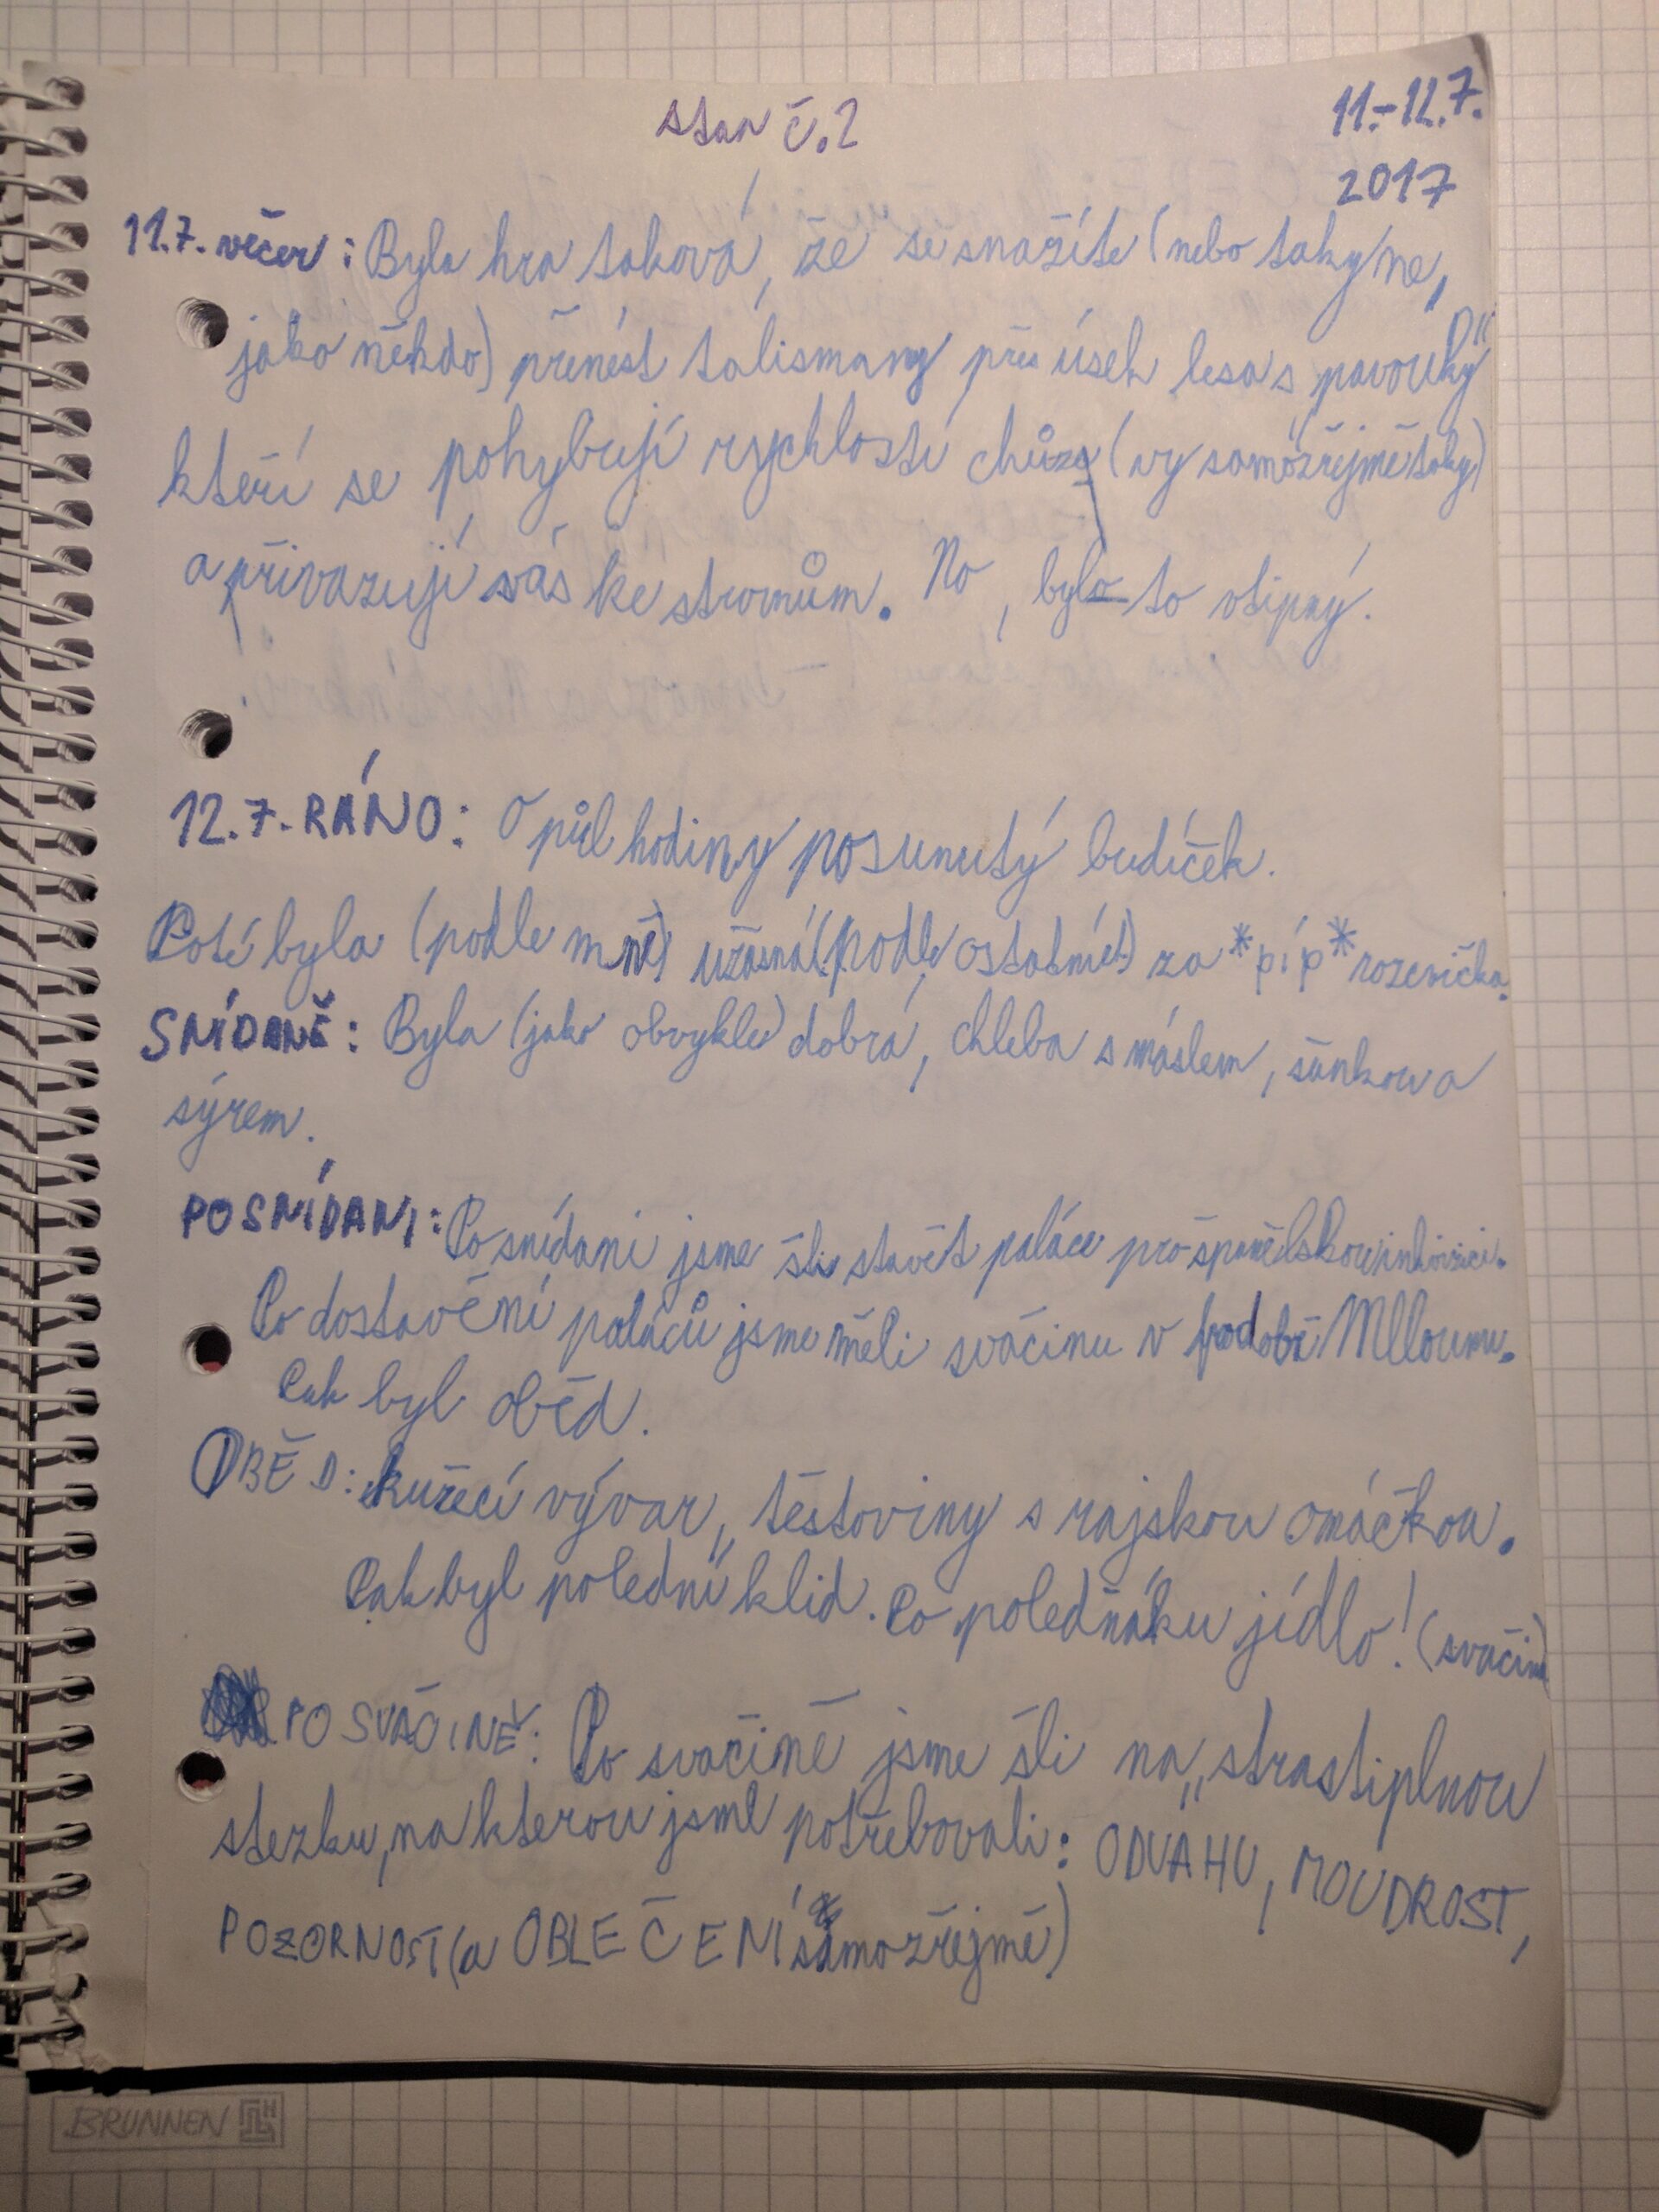 stan č.2
11.-12.7.
2017
11.7. večer: Byla hra taková, že se snažíte (nebo taky ne,
jako někdo) přenést talismany přes úsek lesa s pavouky,
kteří se pohybují rychlostí chůze (vy samozřejmě taky)
a přivazují vás ke stromům. No, bylo to vtipný.
12.7. RÁNO: O půl hodiny posunutý budíček.
Poté byla (podle mně) úžasná (podle ostatních) za *píp* rozcvička.
SNÍDANĚ: Byla (jako obvykle) dobrá, chleba s máslem, šunkou a
sýrem.
PO SNÍDANI: Po snídani jsme šli stavět paláce pro španělskou inkvizici.
Po dostavění paláců jsme měli svačinu v podobě Mlloumu.
Pak byl oběd.
OBĚD: kuřecí vývar, těstoviny s rajskou omáčkou.
Pak byl polední klid. Po poledňáku jídlo! (svačina)
PO SVAČINĚ: Po svačině jsme šli na „strastiplnou
stezku, na kterou jsme potřebovali: ODVAHU, MOUDROST,
POZORNOST (a OBLEČENÍ samozřejmě)
BRUNNEN